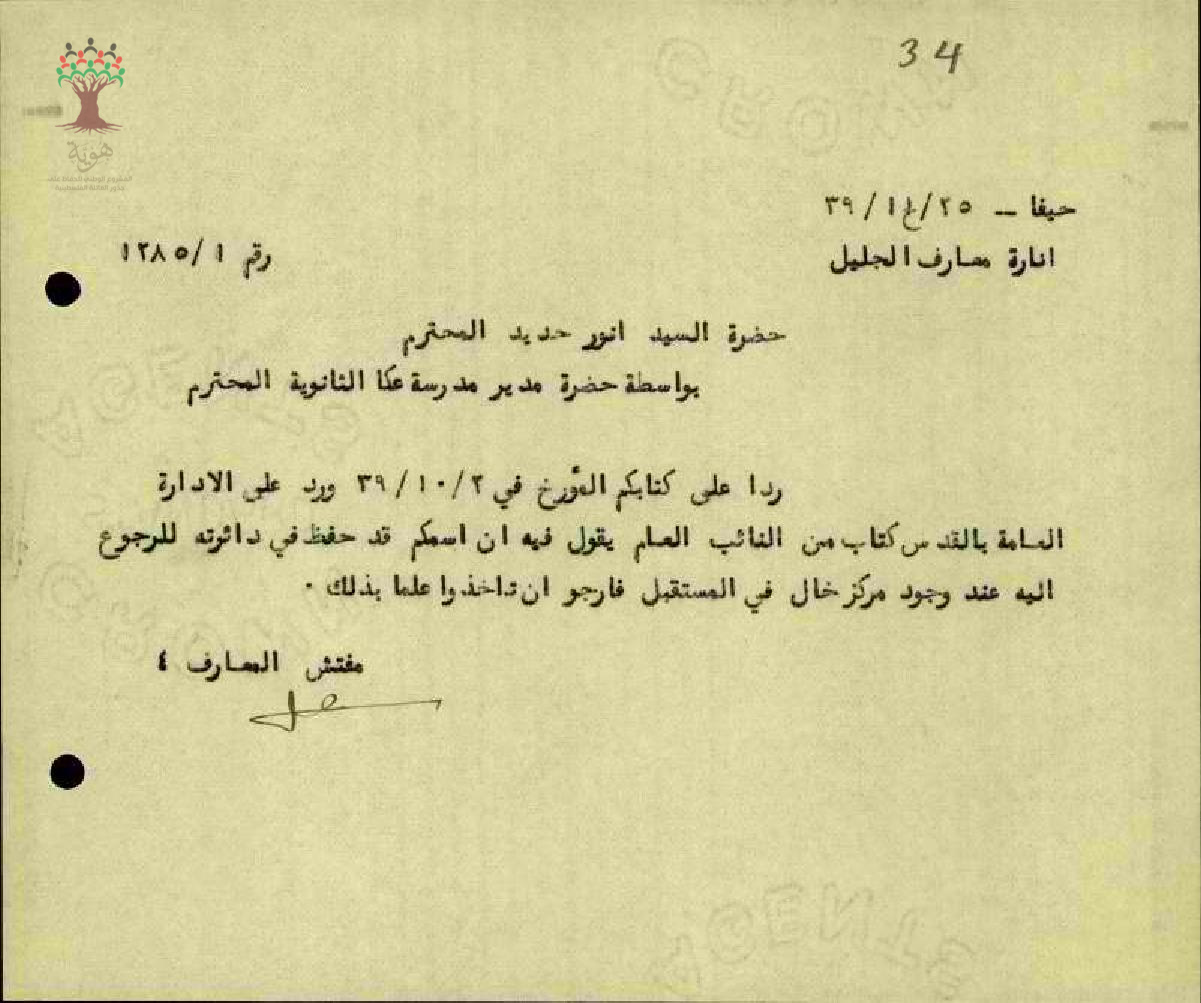 34
هوية
المشروع الوطني للحفاظ على
جذور العائلة الفلسطينية
حيفا — ٢٥/ /٣٩
ادارة معارف الجليل
رقم ١٢٨٥/١
حضرة السيد انور حديد المحترم
بواسطة حضرة مدير مدرسة عكا الثانوية المحترم
ردا على كتابكم المؤرخ في ٣٩/١٠/٢ ورد على الادارة
العامة بالقدس كتاب من النائب العام يقول فيه ان اسمكم قد حفظ في دائرته للرجوع
اليه عند وجود مركز خال في المستقبل فارجو ان تاخذوا علما بذلك ٠
مفتش المعارف ٤
CROWN
AGENTS
CROWN
AGENTS